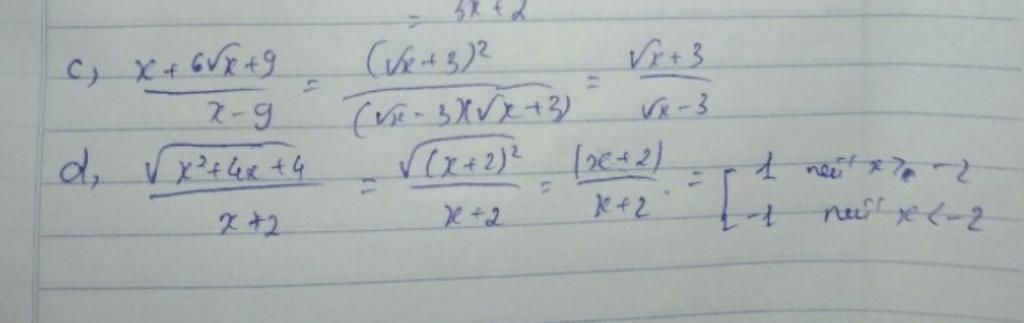 = 3x + 2
c, x + 6√x + 9 / x - 9 = (√x + 3)² / (√x - 3)(√x + 3) = √x + 3 / √x - 3
d, √x² + 4x + 4 / x + 2 = √(x + 2)² / x + 2 = |x + 2| / x + 2 = [ 1 nếu x > -2
-1 nếu x < -2